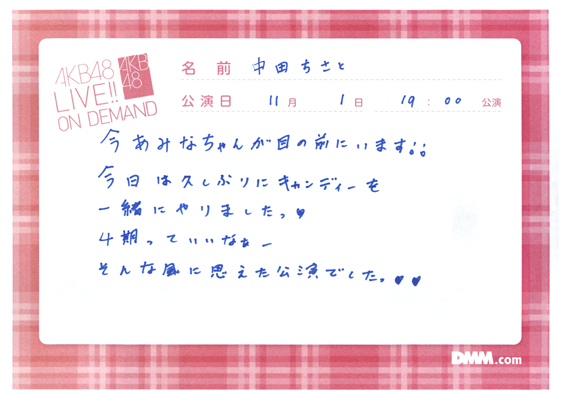 AKB48
LIVE!!
ON DEMAND
AKB
48
名前 中田ちさと
公演日 11月 1日 19:00 公演
今あみなちゃんが目の前にいます!!
今日は久しぶりにキャンディーを
一緒にやりましたっ♥
4期っていいなぁー
そんな風に思えた公演でしたっ♥♥
DMM.com